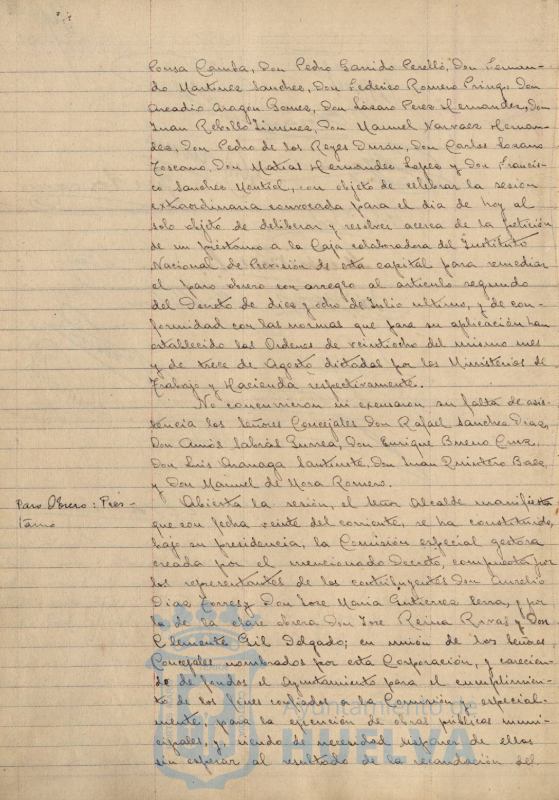 Ponsa Camba, Don Pedro Garrido Perelló, Don Fernan-
do Martínez Sanchez, Don Federico Romero Pringo, Don
Arcadio Aragon Gomez, Don Lazaro Perez Hernandez, Don
Juan Rebollo Jimenez, Don Manuel Narvaez Hernan-
dez, Don Pedro de los Reyes Durán, Don Carlos Lozano
Toscano, Don Matías Hernandez Lopez y Don Francis-
co Sanchez Montiel, con objeto de celebrar la sesion
extraordinaria convocada para el dia de hoy al
solo objeto de deliberar y resolver acerca de la petición
de un préstamo a la Caja colaboradora del Instituto
Nacional de Previsión de esta capital para remediar
el paro obrero con arreglo al articulo segundo
del Decreto de diez y ocho de Julio ultimo, y de con-
formidad con las normas que para su aplicación han
establecido las Ordenes de veintiocho del mismo mes
y de trece de Agosto dictadas por los Ministerios de
Trabajo y Hacienda respectivamente.
No concurrieron ni excusaron su falta de asis-
tencia los Señores Concejales Don Rafael Sanchez Diaz,
Don Amós Sabrás Gurrea, Don Enrique Bueno Cruz,
Don Luis Don Juan Quintero Baez,
y Don Manuel de Mora Romero.
Paro Obrero: Prés-
tamo
Abierta la sesión, el Señor Alcalde manifiesta
que con fecha veinte del corriente, se ha constituido,
bajo su presidencia, la Comisión especial gestora
creada por el mencionado Decreto, compuesta por
los representantes de los contribuyentes Don Aurelio
Diaz Torres y Don Jose Maria Gutierrez Serra, y por
la de la clase obrera Don Jose Reina Rivas y Don
Clemente Gil Delgado; en unión de los Señores
Concejales nombrados por esta Corporación, y carecien-
do de fondos el Ayuntamiento para el cumplimien-
to de los fines confiados a la Comisión y especial-
mente, para la ejecución de obras públicas muni-
cipales, y siendo de necesidad disponer de ellos
sin esperar al resultado de la recaudación del
Ayuntamiento de
HUELVA